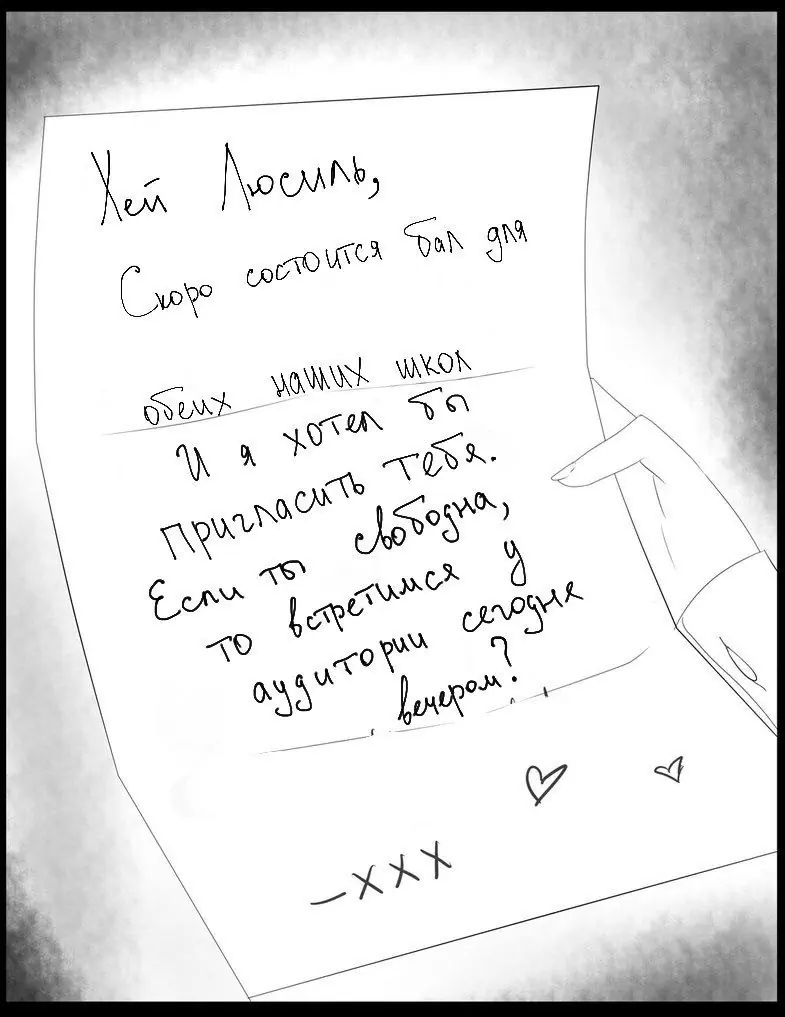 Хей Люсиль,
Скоро состоится бал для
обеих наших школ
И я хотел бы
пригласить тебя.
Если ты свободна,
то встретимся у
аудитории сегодня
вечером?
—XXX